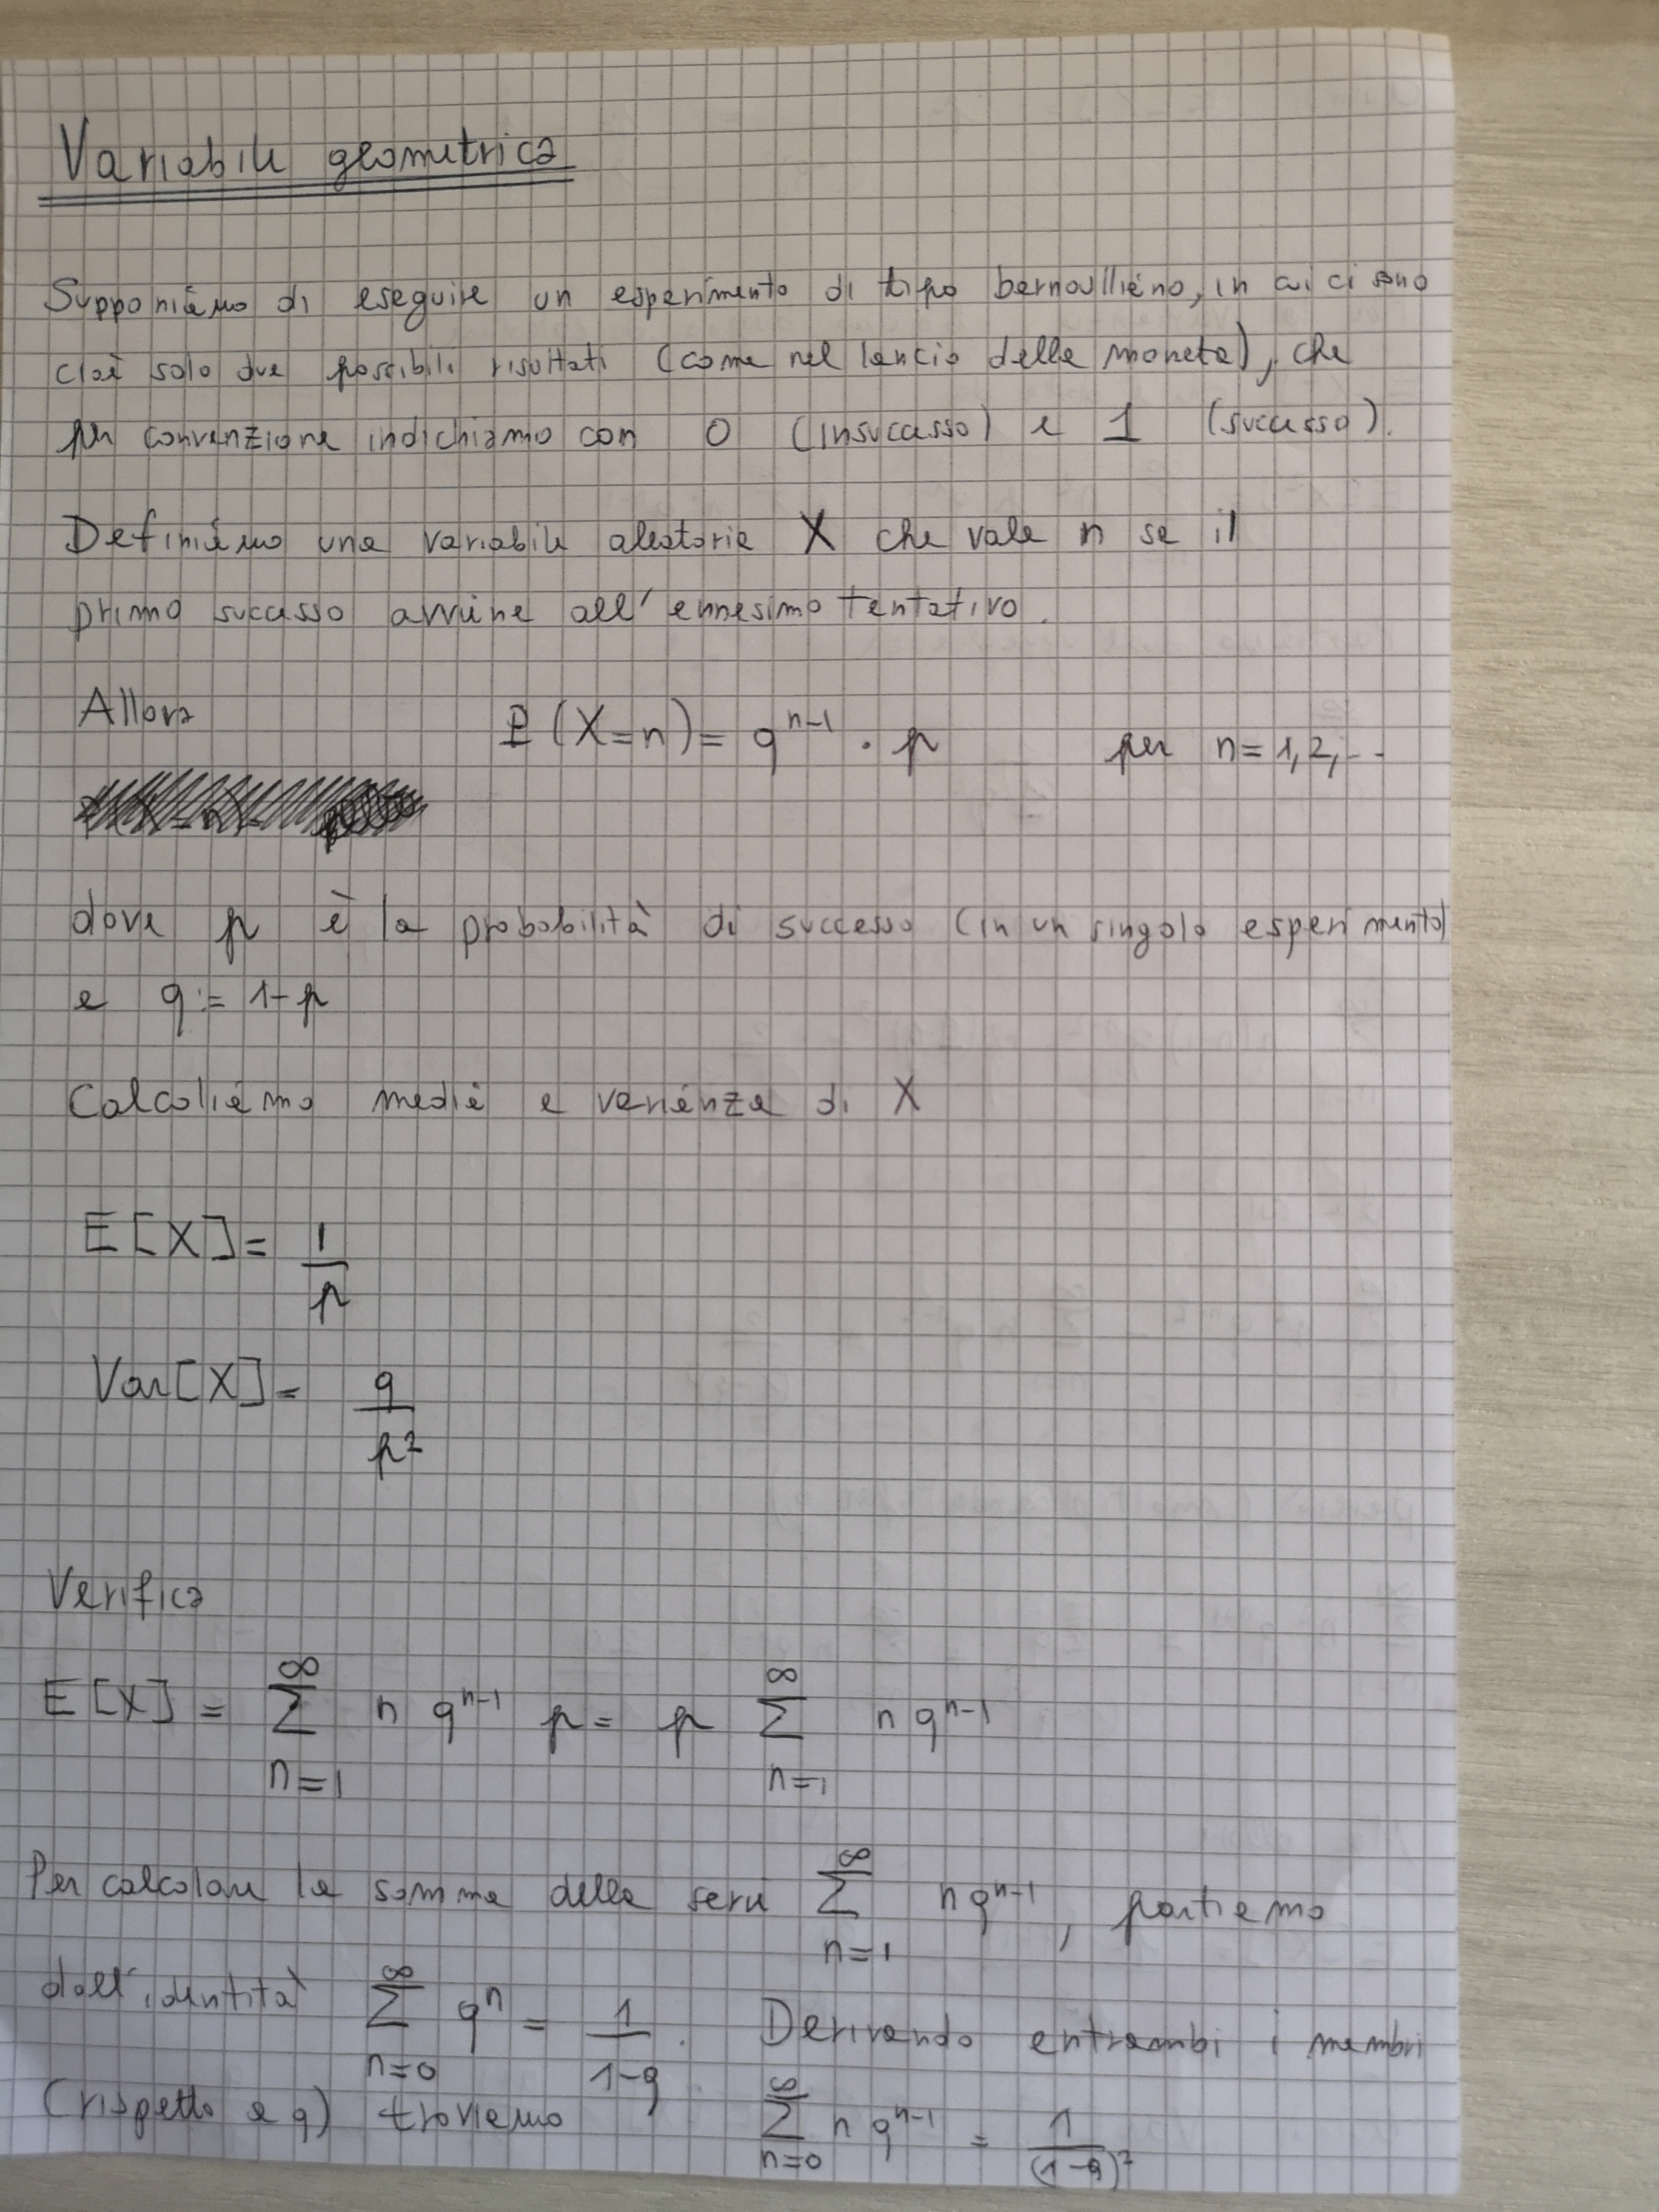 Variabile geometrica
Supponiamo di eseguire un esperimento di tipo bernoulliano, in cui ci sono
cioè solo due possibili risultati (come nel lancio della moneta), che
per convenzione indichiamo con 0 (insuccesso) e 1 (successo).
Definiamo una variabile aleatoria X che vale n se il
primo successo avviene all'ennesimo tentativo.
Allora P(X=n) = q^{n-1} · p per n=1,2,...
dove p è la probabilità di successo (in un singolo esperimento)
e q := 1-p
Calcoliamo media e varianza di X
E[X] = 1/p
Var[X] = q/p²
Verifica
E[X] = ∑_{n=1}^{∞} n q^{n-1} p = p ∑_{n=1}^{∞} n q^{n-1}
Per calcolare la somma della serie ∑_{n=1}^{∞} n q^{n-1}, partiamo
dall'identità ∑_{n=0}^{∞} q^n = 1/(1-q). Derivando entrambi i membri
(rispetto a q) troviamo ∑_{n=0}^{∞} n q^{n-1} = 1/(1-q)²